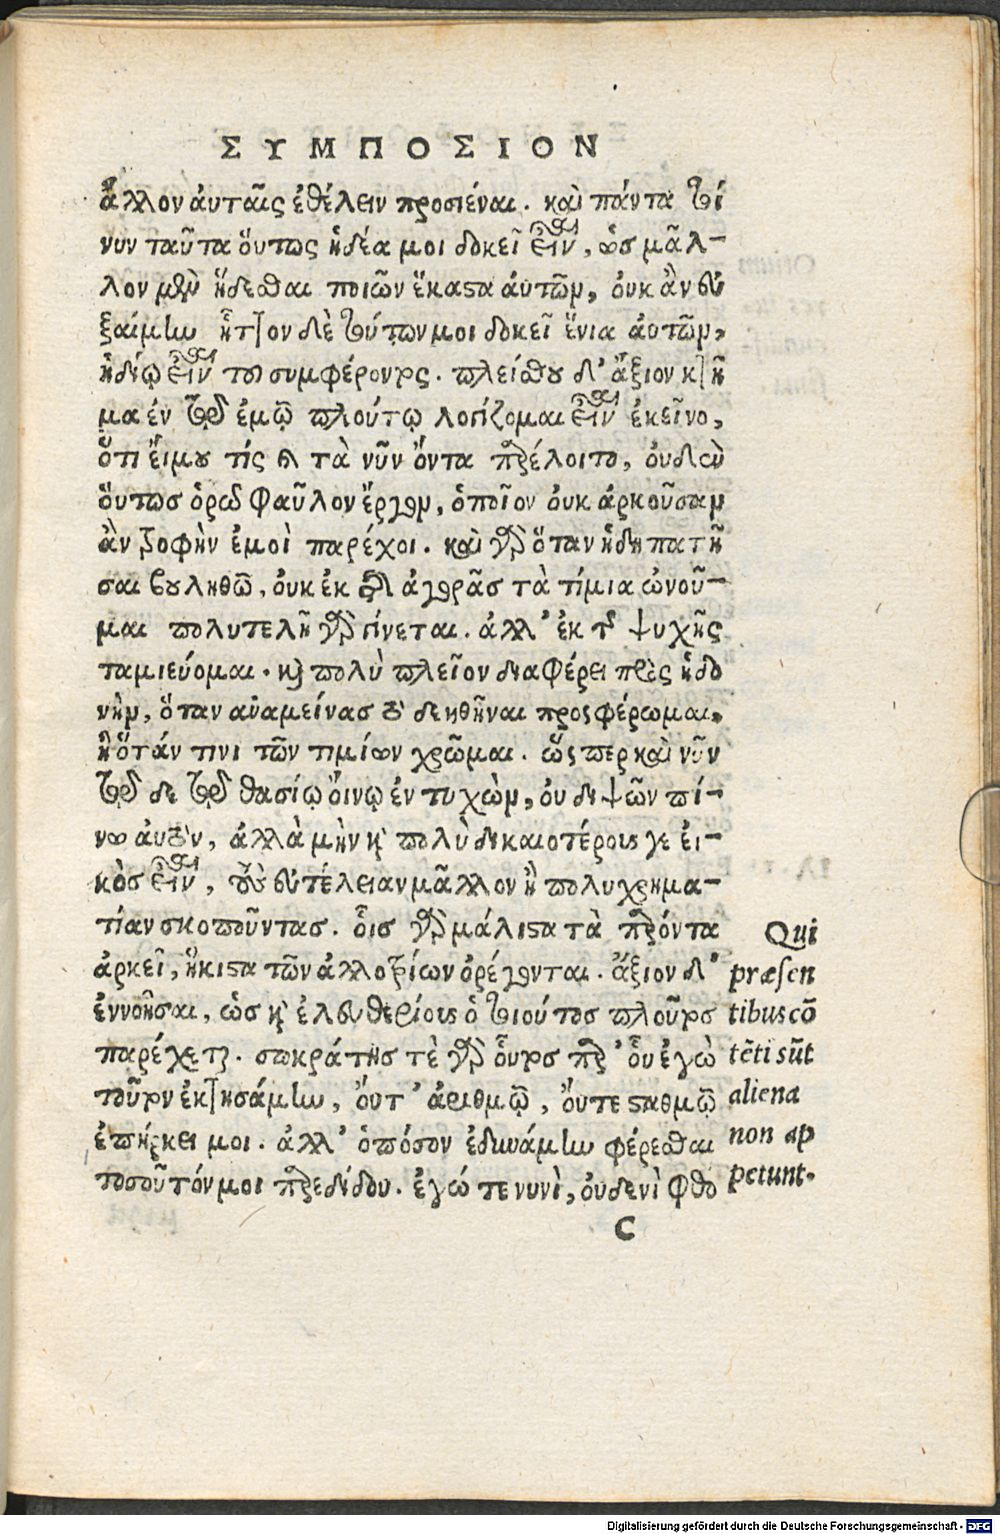 ΣΥΜΠΟΣΙΟΝ
ἄλλον ἀυταῖς ἐθέλειν προσιέναι. καὶ πάντα τοί
νυν ταῦτα ὅυτως ἡδέα μοι δοκεῖ εἶναι, ὡς μᾶλ-
λον μὲν ἥδεσθαι ποιῶν ἕκαστα ἀυτῶν, ὀυκ ἂν ἐυ
ξαίμην ἧττον δὲ τούτων μοι δοκεῖ ἔνια ἀυτῶν,
ἡδίω εἶναι τοῦ συμφέροντος. πλείστου δ' ἄξιον κτῆ
μα ἐν τῷ ἐμῷ πλούτῳ λογίζομαι εἶναι ἐκεῖνο,
ὅτι εἴ μου τίς καὶ τὰ νῦν ὄντα παρέλοιτο, ὀυδὲν
ὅυτως ὁρῶ φαῦλον ἔργον, ὁποῖον ὀυκ ἀρκοῦσαν
ἂν τροφὴν ἐμοὶ παρέχοι. καὶ γὰρ ὅταν ἡδυπατῆ
σαι βουληθῶ, ὀυκ ἐκ τῆς ἀγορᾶς τὰ τίμια ὠνοῦ-
μαι πολυτελῆ γὰρ γίνεται. ἀλλ' ἐκ τῆς ψυχῆς
ταμιεύομαι. καὶ πολὺ πλεῖον διαφέρει πρὸς ἡδο
νὴν, ὅταν ἀναμείνας τὸ δεηθῆναι προσφέρωμαι,
ἢ ὅτάν τινι τῶν τιμίων χρῶμαι. ὥσπερ καὶ νῦν
τῷ δε τῷ θασίῳ ὄινῳ ἐντυχὼν, ὀυ διψῶν πί-
νω ἀυτὸν, ἀλλὰ μὴν καὶ πολὺ δικαιοτέρους γε ἐι-
κὸς εἶναι, τοὺς ἐυτέλειαν μᾶλλον ἢ πολυχρημα-
τίαν σκοποῦντας. οἷς γὰρ μάλιστα τὰ παρόντα
ἀρκεῖ, ἥκιστα τῶν ἀλλοτρίων ὀρέγονται. ἄξιον δ'
ἐννοῆσαι, ὡς καὶ ἐλευθερίους ὁ τοιοῦτος πλοῦτος
παρέχεται. σωκράτης τὲ γὰρ οὗτος παρ' οὗ ἐγὼ
τοῦτον ἐκτησάμην, ὄυτ' ἀριθμῷ, ὄυτε σταθμῷ
ἐπήρκει μοι. ἀλλ' ὁπόσον ἐδυνάμην φέρεσθαι
τοσοῦτόν μοι παρεδίδου. ἐγώ τε νυνὶ, ὀυδενὶ φθο
Qui
præsen
tibus cō
tēti sūt
aliena
non ap
petunt.
C
Digitalisierung gefördert durch die Deutsche Forschungsgemeinschaft - DFG